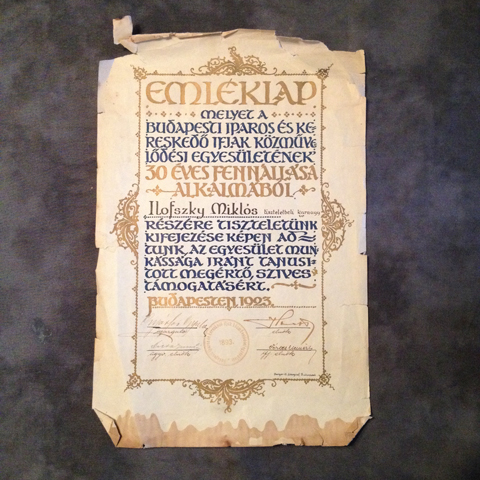 EMLÉKLAP
MELYET A
BUDAPESTI IPAROS ÉS KE-
RESKEDŐ IFJAK KÖZMŰVE-
LŐDÉSI EGYESÜLETÉNEK
30 ÉVES FENNÁLLÁSA
ALKALMÁBÓL
Ilofszky Miklós
RÉSZÉRE TISZTELETÜNK
KIFEJEZÉSE KÉPEN AD-
TUNK, AZ EGYESÜLET MUN-
KÁSSÁGA IRÁNT TANUSI-
TOTT MEGÉRTŐ, SZIVES
TÁMOGATÁSÉRT.
BUDAPESTEN 1925.